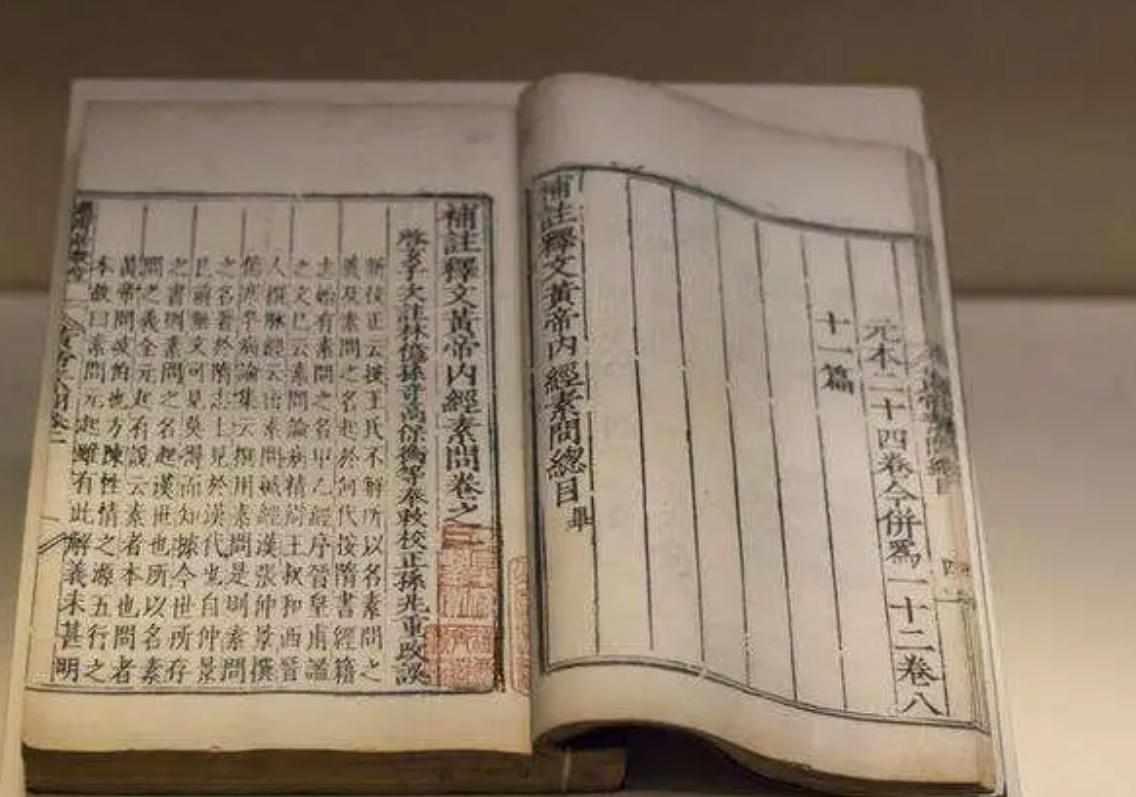 元本二十四卷今併爲一十二卷八
十一篇
補註釋文黃帝內經素問總目 畢
補註釋文黃帝內經素問卷之
啓玄子次註林億孫奇高保衡等奉敕校正孫兆重改誤
新校正云按王氏不解所以名素問之
義及素問之名起於何代按隋書經籍
志始有素問之名甲乙經序晉皇甫謐
之文已云素問論病精辯王叔和西晉
人撰脉經云出素問鍼經漢張仲景撰
傷寒卒病論集云撰用素問是則素問
之名著於隋志上見於漢代也自仲景
已前無文可見莫得而知據今世所存
之書則素問之名起漢世也所以名素
問之義全元起有說云素者本也問者
黃帝問岐伯也方陳性情之源五行之
本故曰素問元起雖有此解義未甚明